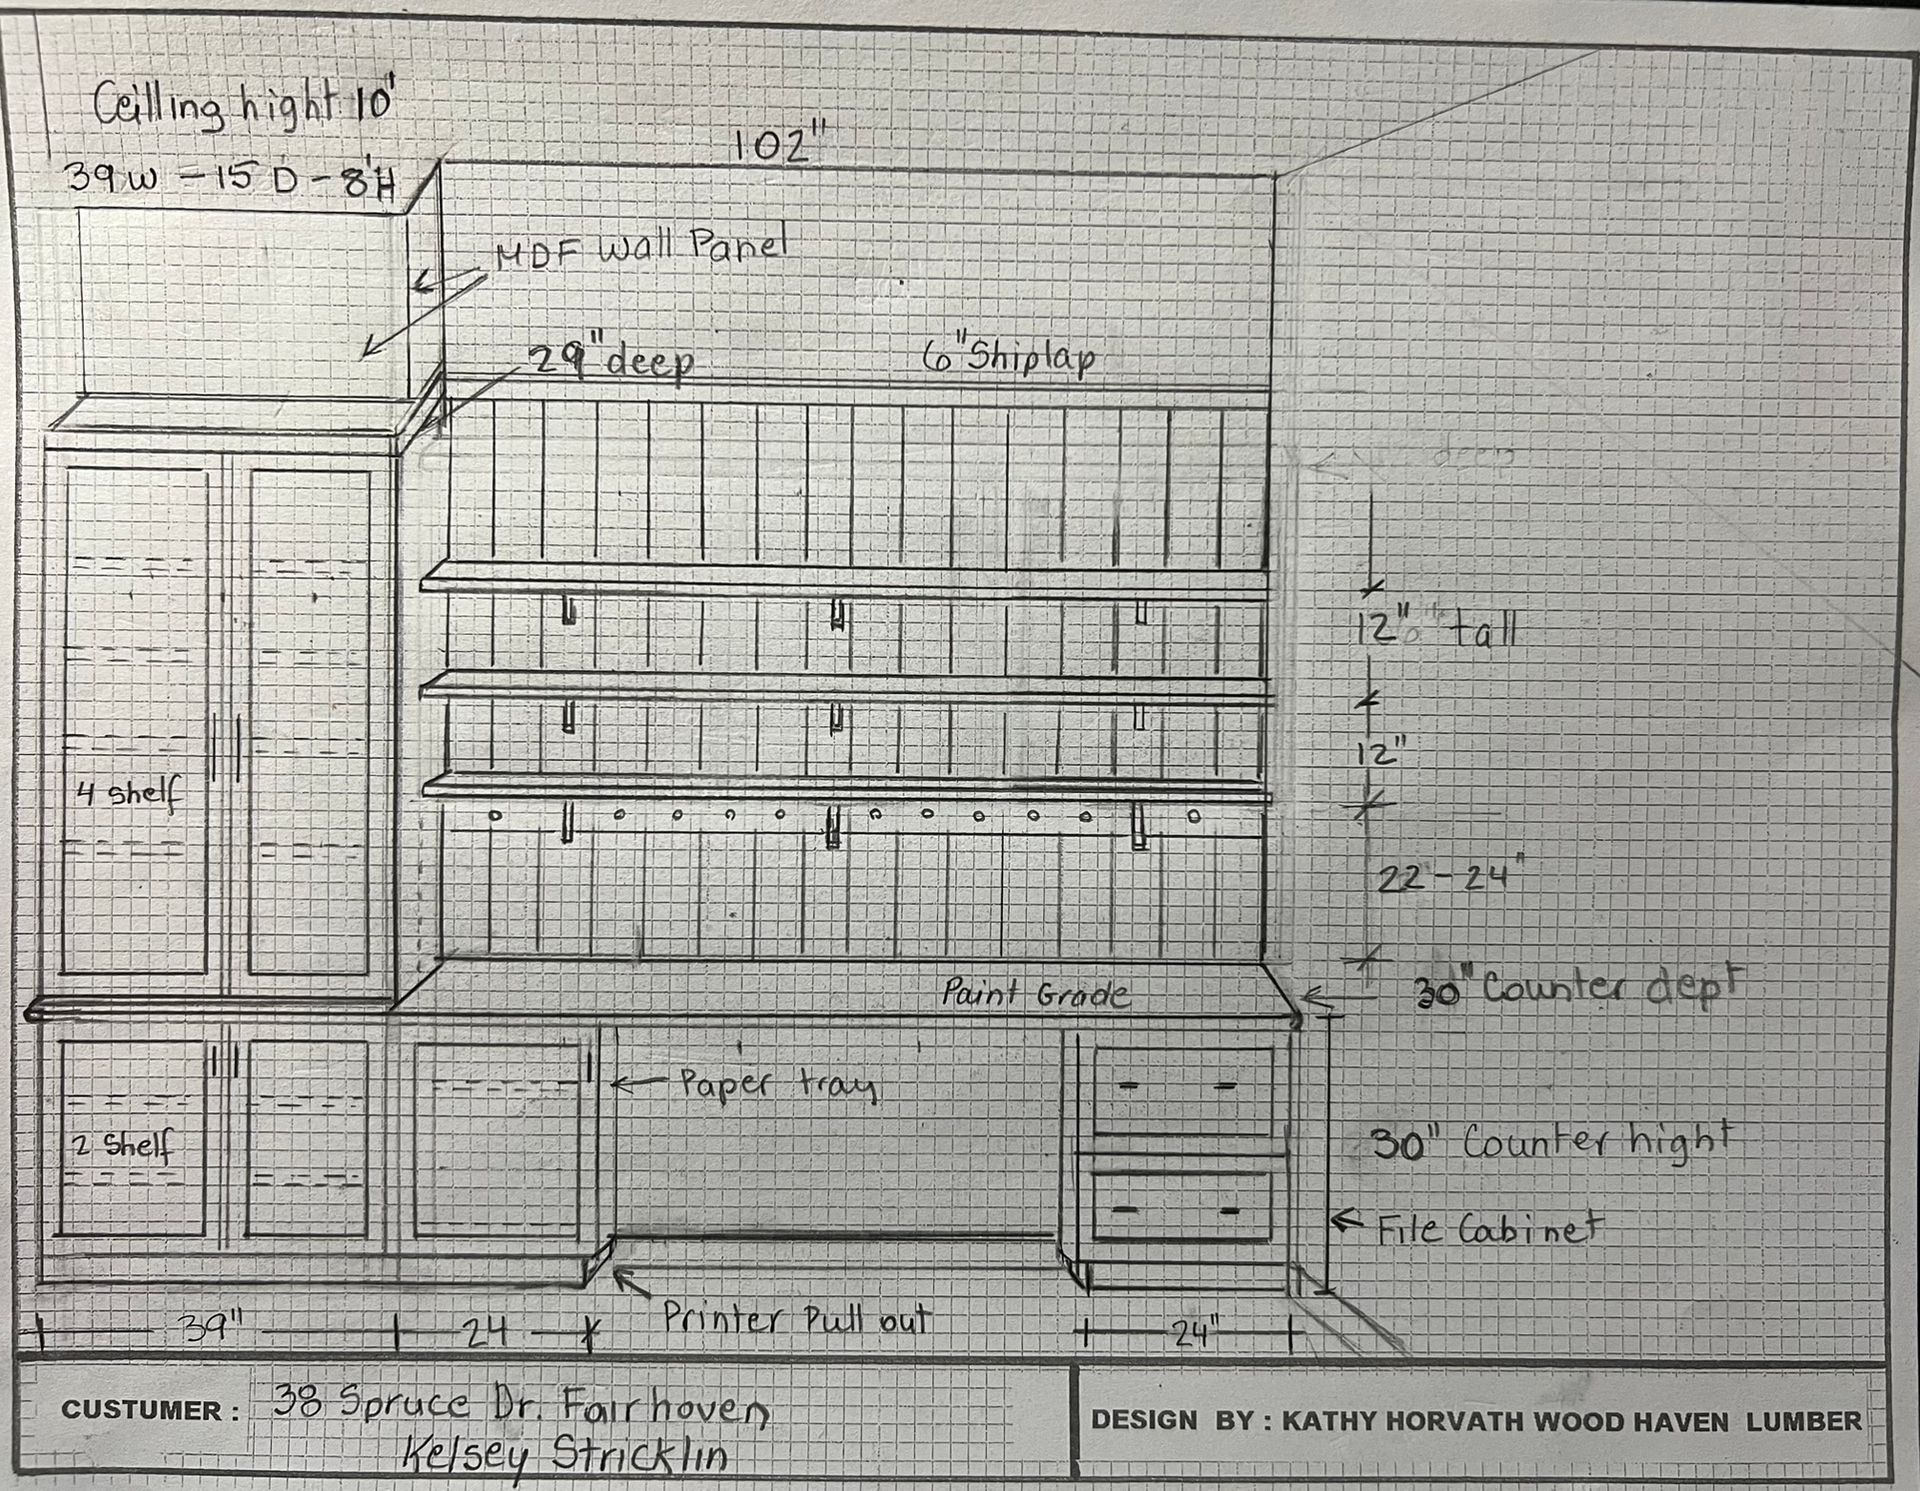 Ceilling hight 10'
39W - 15 D - 8'H
102"
MDF Wall Panel
29" deep
6" Shiplap
deep
12" tall
12"
4 Shelf
22 - 24"
Paint Grade
30" Counter dept
Paper tray
2 Shelf
30" Counter hight
File Cabinet
39"
24
Printer Pull out
24"
CUSTUMER : 38 Spruce Dr. Fairhaven
Kelsey Stricklin
DESIGN BY : KATHY HORVATH WOOD HAVEN LUMBER